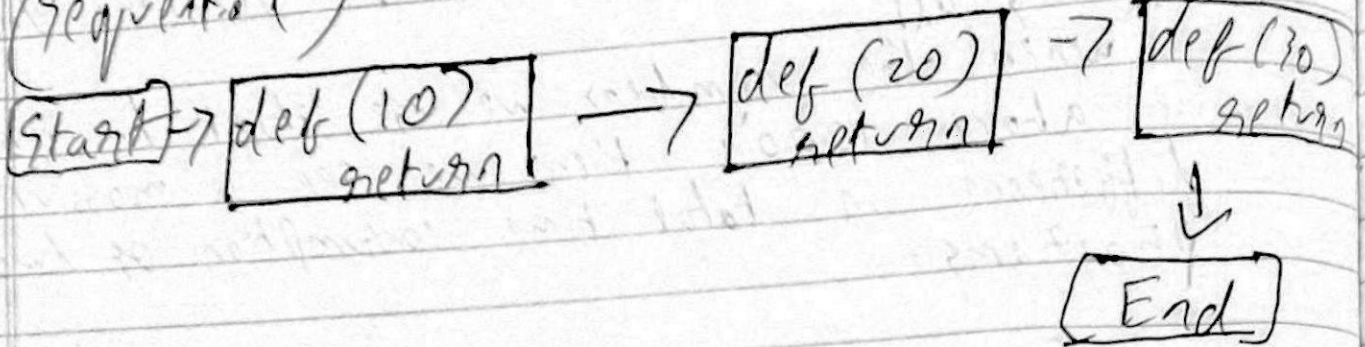 (Sequential)
Start → def (10) return → def (20) return → def (30) return
↓
End